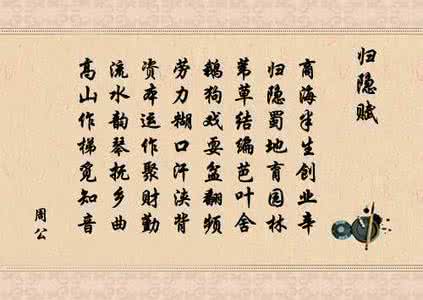 归隐赋
商海半生创业辛
归隐蜀地育园林
苇草结编芭叶舍
鹅狗戏耍盆翻频
劳力糊口汗浃背
资本运作聚财勤
流水韵琴抚乡曲
高山作梯觅知音
周公